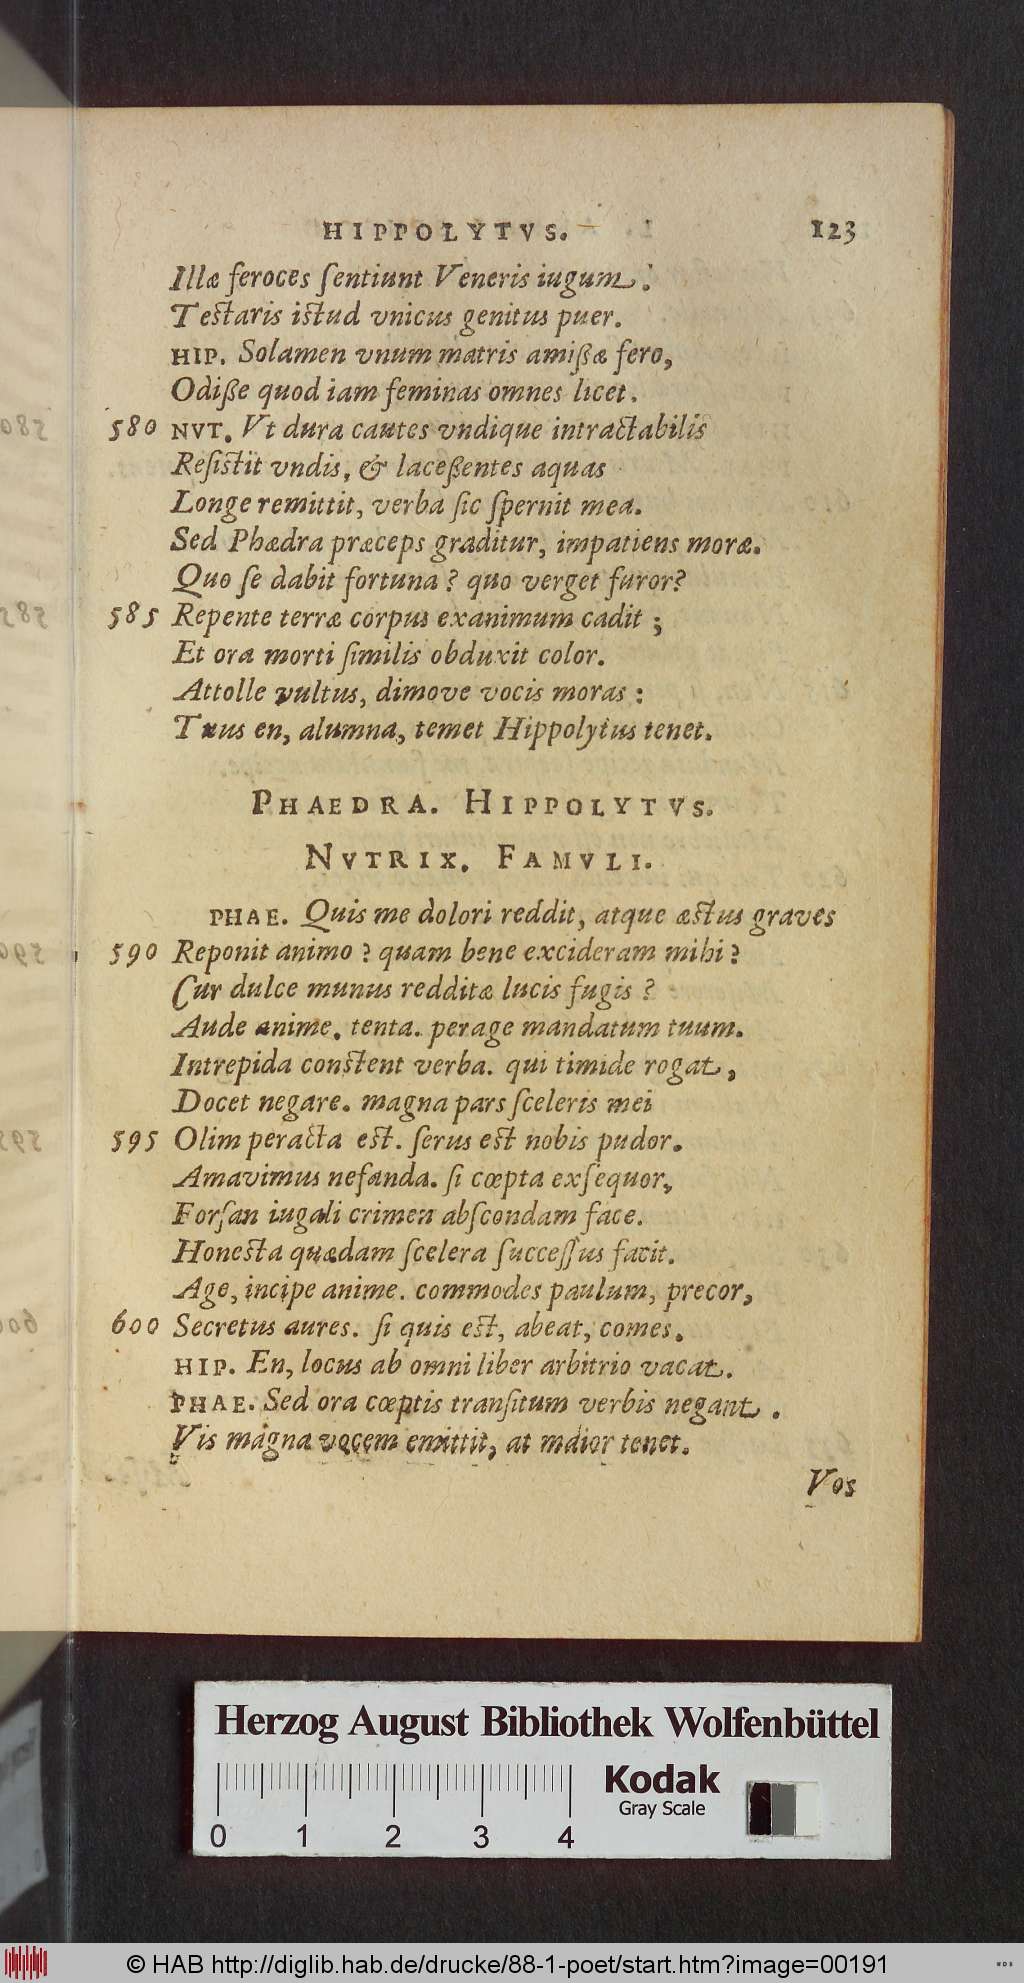 HIPPOLYTVS. 123
Illæ feroces ſentiunt Veneris iugum.
Teſtaris iſtud vnicus genitus puer.
HIP. Solamen vnum matris amißæ fero,
Odiße quod iam feminas omnes licet.
580 NVT. Vt dura cautes vndique intractabilis
Reſiſtit vndis, & laceßentes aquas
Longe remittit, verba ſic ſpernit mea.
Sed Phædra præceps graditur, impatiens moræ.
Quo ſe dabit fortuna? quo verget furor?
585 Repente terræ corpus exanimum cadit;
Et ora morti ſimilis obduxit color.
Attolle vultus, dimove vocis moras:
Tuus en, alumna, temet Hippolytus tenet.
PHAEDRA. HIPPOLYTVS.
NVTRIX. FAMVLI.
PHAE. Quis me dolori reddit, atque æſtus graves
590 Reponit animo? quam bene excideram mihi?
Cur dulce munus redditæ lucis fugis?
Aude anime. tenta. perage mandatum tuum.
Intrepida conſtent verba. qui timide rogat,
Docet negare. magna pars ſceleris mei
595 Olim peracta eſt. ſerus eſt nobis pudor.
Amavimus nefanda. ſi cœpta exſequor,
Forſan iugali crimen abſcondam face.
Honeſta quædam ſcelera ſucceſſus facit.
Age, incipe anime. commodes paulum, precor,
600 Secretus aures. ſi quis eſt, abeat, comes.
HIP. En, locus ab omni liber arbitrio vacat.
PHAE. Sed ora cœptis tranſitum verbis negant.
Vis magna vocem emittit, at maior tenet.
Vos
Herzog August Bibliothek Wolfenbüttel
Kodak
Gray Scale
0 1 2 3 4
© HAB http://diglib.hab.de/drucke/88-1-poet/start.htm?image=00191